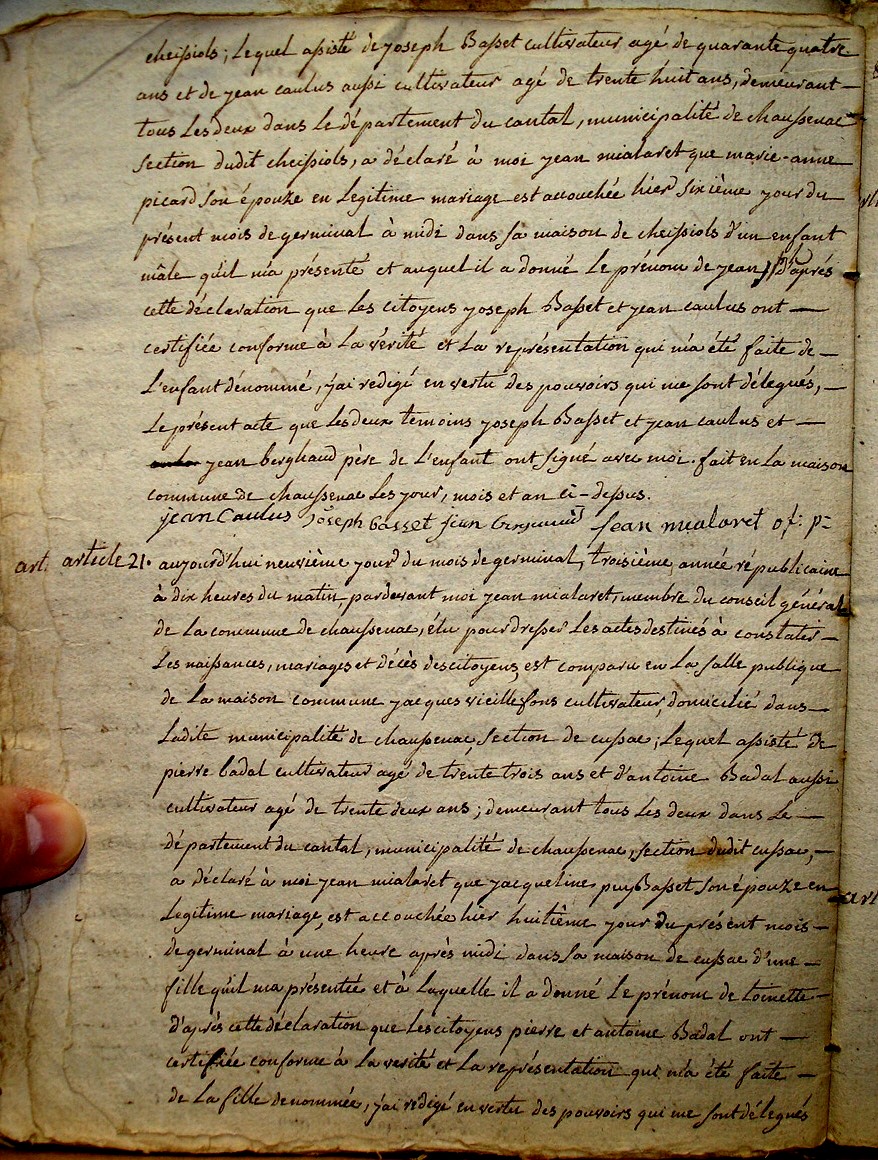 cheissiols; lequel assisté de joseph Basset cultivateur agé de quarante quatre
ans et de jean caulus aussi cultivateur agé de trente huit ans, demeurant
tous les deux dans le département du cantal, municipalité de chaussenac
section dudit cheissiols, a déclaré à moi jean mialaret que marie-anne
picard son épouze en legitime mariage est accouchée hier sixième jour du
présent mois de germinal à midi dans sa maison de cheissiols d'un enfant
mâle qu'il m'a présenté et auquel il a donné le prénom de jean, d'après
cette déclaration que les citoyens joseph Basset et jean caulus ont
certifiée conforme à la vérité et la représentation qui m'a été faite de
l'enfant dénommé, j'ai redigé en vertu des pouvoirs qui me sont délegués,
le présent acte que les deux temoins joseph Basset et jean caulus et
jean berghaud père de l'enfant ont signé avec moi. fait en la maison
commune de chaussenac les jour, mois et an ci-dessus.
jean Caulus Joseph basset jean jean mialaret of. p.
art. article 21. aujourd'hui neuvième jour du mois de germinal, troisième année républicaine
à dix heures du matin, pardevant moi jean mialaret, membre du conseil général
de la commune de chaussenac, élu pour dresser les actes destinés à constater
les naissances, mariages et décès des citoyens, est comparu en la salle publique
de la maison commune jacques vieillefons cultivateur, domicilié dans
ladite municipalité de chaussenac, section de cussac; lequel assisté de
pierre badal cultivateur agé de trente trois ans et d'antoine Badal aussi
cultivateur agé de trente deux ans; demeurant tous les deux dans le
département du cantal, municipalité de chaussenac, section dudit cussac,
a déclaré à moi jean mialaret que jacqueline puyBasset son épouze en
legitime mariage, est accouchée hier huitième jour du présent mois
de germinal à une heure après midi dans sa maison de cussac d'une
fille qu'il ma présentée et à laquelle il a donné le prénom de toinette
d'après cette déclaration que les citoyens pierre et antoine Badal ont
certifiée conforme à la verité et la représentation qui m'a été faite
de la fille denommée, j'ai redigé en vertu des pouvoirs qui me sont délegués